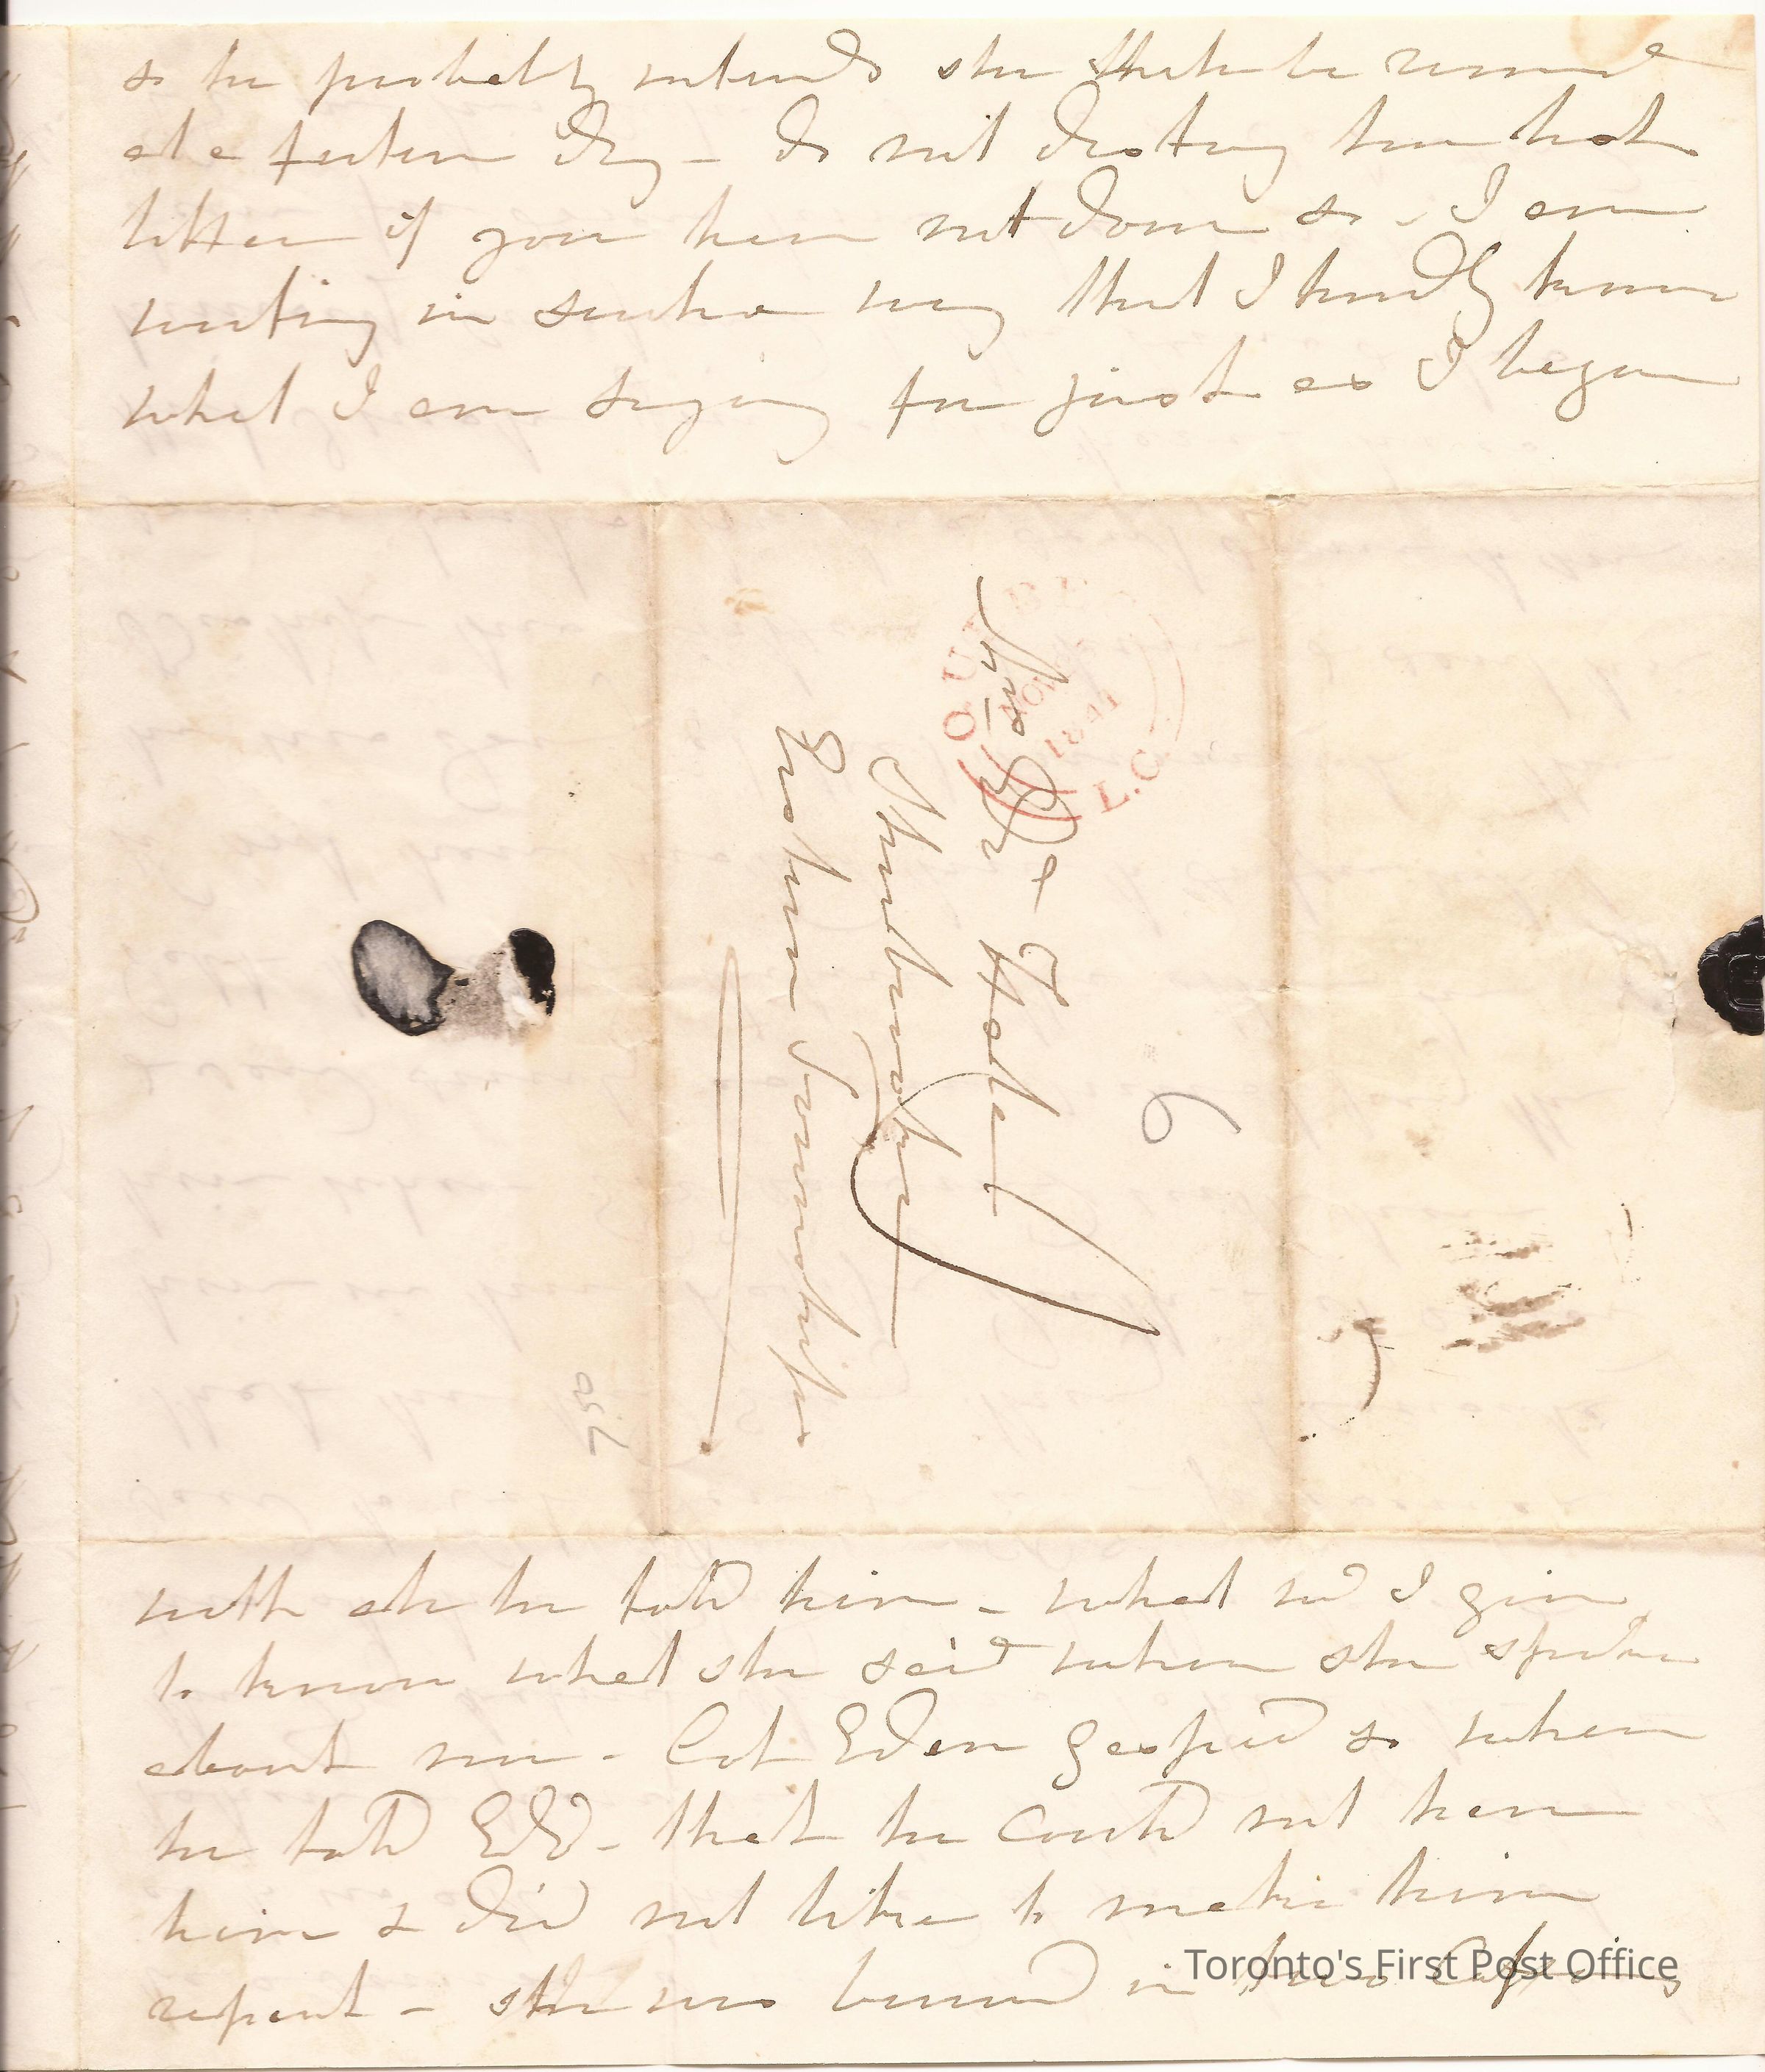 so he probably intends she shall be removed
at a future day - do not destroy her last
letter if you have not done so - I am
writing in such a way that I hardly know
what I am saying for just as I began
QUEBEC
NOV
1841
L.C.
Mrs
Shrewsbury
Eastern Townships
6
750
with all he told him - what wd I give
to know what she said when she spoke
about me - Col Eden gasped so when
he told Edd - that he could not hear
him & did not like to make him
repeat - she was buried in two
Toronto's First Post Office